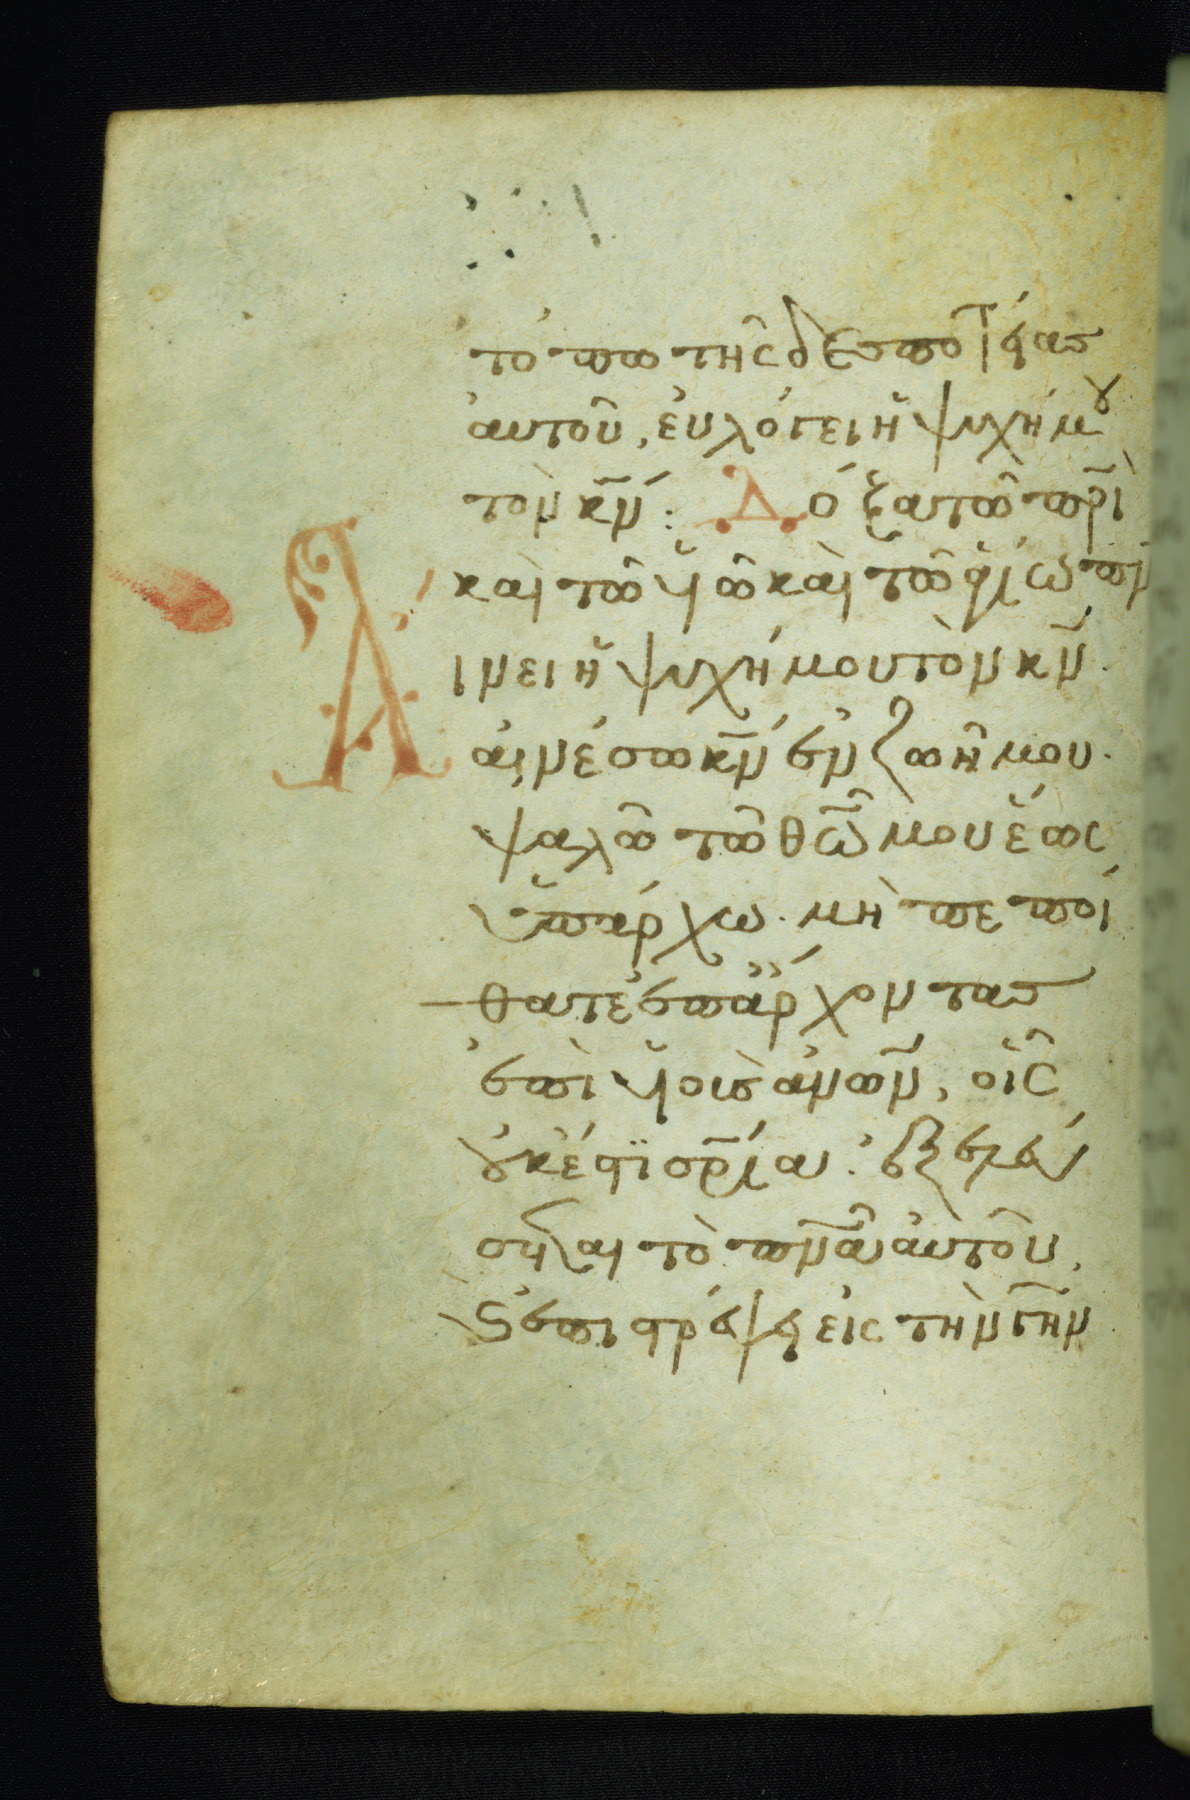 τόπω τῆς δεσποτείας
ἀυτοῦ, ἐυλόγει ἡ ψυχή μου
τὸν κ̅ν̅: Δόξα τῶ π̅ρ̅ὶ
καὶ τῶ υἱῶ καὶ τῶ ἁγίω πν
Αἴνει ἡ ψυχή μου τὸν κ̅ν̅.
αἰνέσω κ̅ν̅ ἐν ζωῆ μου.
ψαλῶ τῶ θ̅ω̅ μου ἕως
ὑπάρχω. μὴ πεποί
θατε ἐπ ἄρχοντας
ἐπὶ υἱοὺς ἀν̅ων̅, οἷς
οὐκ ἔστι σ̅ρ̅ία. ἐξελεύ
σεται τὸ π̅ν̅α̅ ἀυτοῦ,
ϗ ἐπιστρέψει εἰς τὴν γῆν